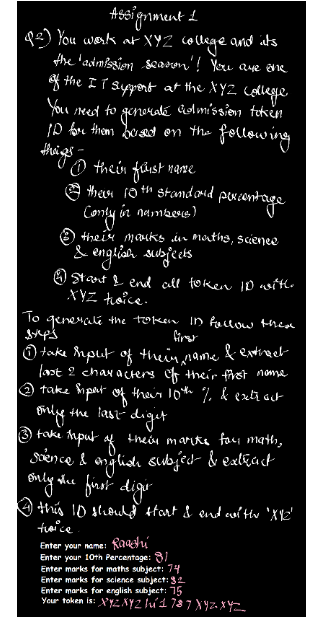 Assignment 1
Q2) You work at XYZ college and its
the 'admission season'! You are one
of the IT Support at the XYZ College
You need to generate admission token
ID for them based on the following
things -
① their first name
② their 10th standard percentage
(only in numbers)
③ their marks in maths, science
& english subjects
④ Start & end all token ID with
XYZ twice.
To generate the token ID follow these
steps
① take input of their first name & extract
last 2 characters of their first name
② take input of their 10th % & extract
only the last digit
③ take input of their marks for math,
science & english subject & extract
only the first digit
④ this ID should start & end with 'XYZ'
twice
Enter your name: Raashi
Enter your 10th Percentage: 81
Enter marks for maths subject: 74
Enter marks for science subject: 32
Enter marks for english subject: 75
Your token is: XYZXYZhi1737XYZXYZ